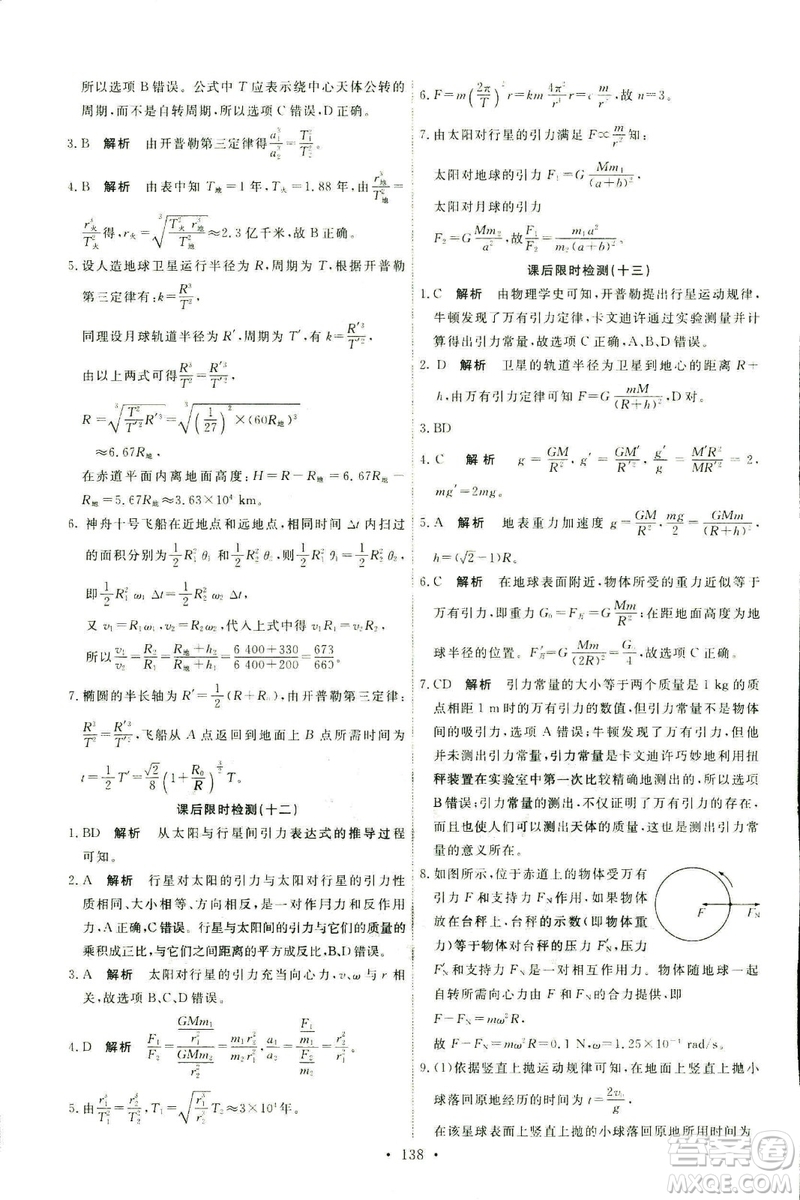 所以选项 B 错误。公式中 T 应表示绕中心天体公转的
周期,而不是自转周期,所以选项 C 错误,D 正确。
3. B 解析 由开普勒第三定律得 a₁³/a₂³=T₁²/T₂²。
4. B 解析 由表中知 T地=1 年,T火=1.88 年,由 r地³/T地²=
r火³/T火² 得,r火=∛(T火² r地³/T地²)≈2.3 亿千米,故 B 正确。
5. 设人造地球卫星运行半径为 R,周期为 T,根据开普勒
第三定律有:k=R³/T²
同理设月球轨道半径为 R′,周期为 T′,有:k=R′³/T′²
由以上两式可得:R³/T²=R′³/T′²
R=∛(T²/T′² R′³)=∛((1/27)²×(60R地)³)
≈6.67R地
在赤道平面内离地面高度:H=R-R地=6.67R地
-R地=5.67R地≈3.63×10⁴ km。
6. 神舟十号飞船在近地点和远地点,相同时间 Δt 内扫过
的面积分别为 1/2 R₁²θ₁ 和 1/2 R₂²θ₂,则 1/2 R₁²θ₁=1/2 R₂²θ₂
即 1/2 R₁²ω₁Δt=1/2 R₂²ω₂Δt
又 v₁=R₁ω₁,v₂=R₂ω₂,代入上式中得:R₁v₁=R₂v₂
所以 v₁/v₂=R₂/R₁=(R地+h₂)/(R地+h₁)=(6 400+330)/(6 400+200)=673/660。
7. 椭圆的半长轴为 R′=1/2(R+R₀),由开普勒第三定律得
R³/T²=R′³/T′²,飞船从 A 点返回到地面上 B 点所需时间为
t=1/2 T′=√2/8(1+R₀/R)^(3/2) T。
课后限时检测(十二)
1. BD 解析 从太阳与行星间引力表达式的推导过程
可知。
2. A 解析 行星对太阳的引力与太阳对行星的引力性质
相同、大小相等、方向相反,是一对作用力和反作用
力,A 正确,C 错误。行星与太阳间的引力与它们的质量的
乘积成正比,与它们之间距离的平方成反比,B、D 错误。
3. A 解析 太阳对行星的引力充当向心力,v、r、ω 相
关,故改变一个量,其他量也会随着改变,A 正确。
4. D 解析 F₁/F₂=(GMm₁/r₁²)/(GMm₂/r₂²)=m₁r₂²/(m₂r₁²),a₁/a₂=(F₁/m₁)/(F₂/m₂)=r₂²/r₁²。
5. 由 r₁³/T₁²=r₂³/T₂²,得 T₁=√(r₁³/r₂³)T₂≈3×10⁴年。
6. F=m(2π/T)²r=km 4π²/r³·r=4π²k m/r²,故 n=3。
7. 由太阳对行星的引力满足 F∝m/r² 知:
太阳对地球的引力 F₁=G Mm₁/(a+h)²
太阳对月球的引力
F₂=G Mm₂/a²,故 F₁/F₂=m₁a²/(m₂(a+h)²)。
课后限时检测(十三)
1. C 解析 由物理学史可知,开普勒提出行星运动规律,
牛顿发现了万有引力定律,卡文迪许通过实验测量并计
算得出引力常量,故选项 C 正确,A、B、D 错误。
2. D 解析 卫星的轨道半径为卫星到地心的距离 R+
h,由万有引力定律可知 F=G mM/(R+h)²,D 对。
3. BD
4. C 解析 g=GM/R²,g′=GM′/R′²,g′/g=M′R²/MR′²=2,
mg′=2mg。
5. A 解析 地表重力加速度 g=GM/R²,mg/2=GMm/(R+h)²,
h=(√2-1)R。
6. C 解析 在地球表面附近,物体所受的重力近似等于
万有引力,即重力 G₀=F万=G Mm/R²;在距地面高度为地
球半径的位置。F万′=G Mm/(2R)²=G₀/4,故选项 C 正确。
7. CD 解析 引力常量的大小等于两个质量是 1 kg 的质
点相距 1 m 时的万有引力的数值,但引力常量不是两物体
间的吸引力,选项 A 错误;牛顿发现了万有引力定律,但
并未测出引力常量,引力常量是卡文迪许巧妙地利用扭
秤装置在实验室中第一次比较精确地测出的,所以选项
B 错误;引力常量的测出,不仅证明了万有引力的存在,
而且也使人们可以测出天体的质量,这也是测出引力常
量的意义所在。
8. 如图所示,位于赤道上的物体受万有
引力 F 和支持力 Fₙ 作用,如果将物体
放在台秤上,台秤的示数(即台秤的压
力)等于物体对台秤的压力 Fₙ′,而压力
Fₙ′ 和支持力 Fₙ 大小相等。物体随地球一起
自转所需的向心力由 F 和 Fₙ 的合力提供,所以
F-Fₙ=mω²R。
故 F-Fₙ=mω²R=0.1 N,ω=1.25×10⁻⁴ rad/s。
F
Fₙ
9. (1)依据竖直上抛运动规律可知,地面上竖直上抛小
球落回原地经历的时间为 t=2v₀/g
在该星球表面上竖直上抛的小球落回原地所用时间为
138
答案圈
MXQE.COM